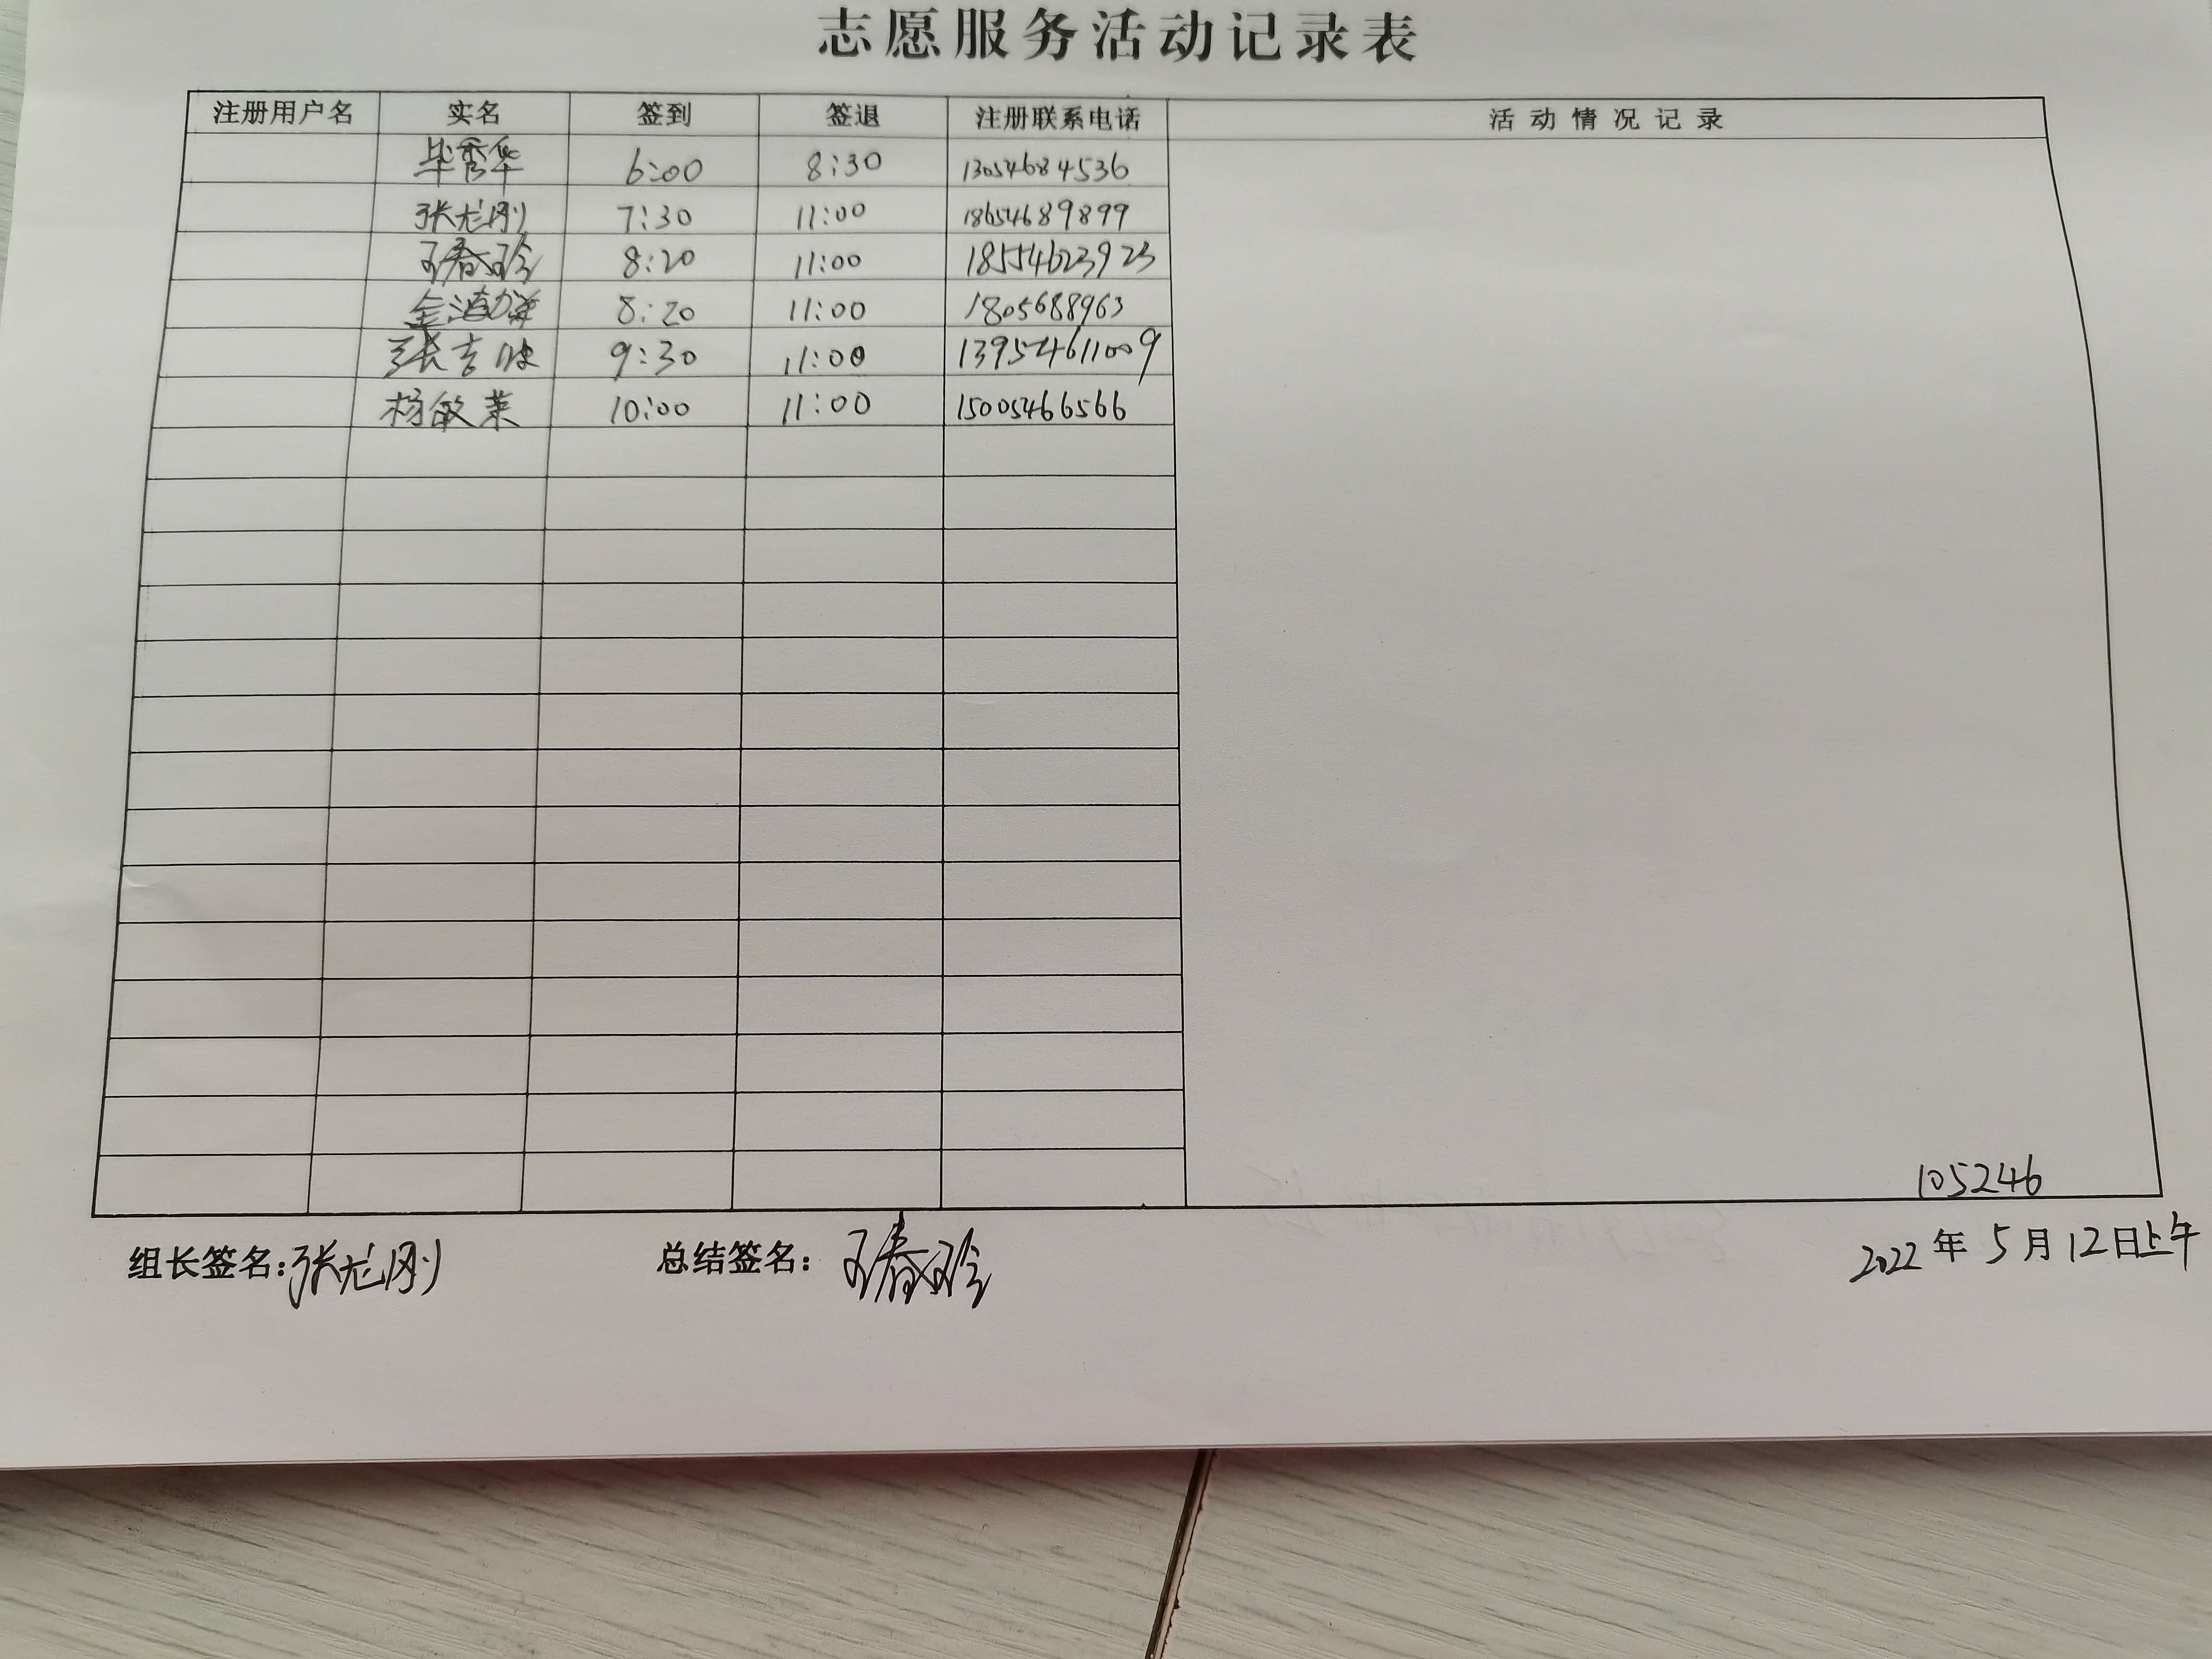 志愿服务活动记录表
注册用户名 实名 签到 签退 注册联系电话 活动情况记录
毕秀华 6:00 8:30 13054684536
张龙刚 7:30 11:00 18654689899
王春玲 8:20 11:00 18554623923
8:20 11:00 1805688963
张吉 9:30 11:00 13954611009
杨敏英 10:00 11:00 15005466566
105246
组长签名:张龙刚 总结签名:王春玲 2022年5月12日上午